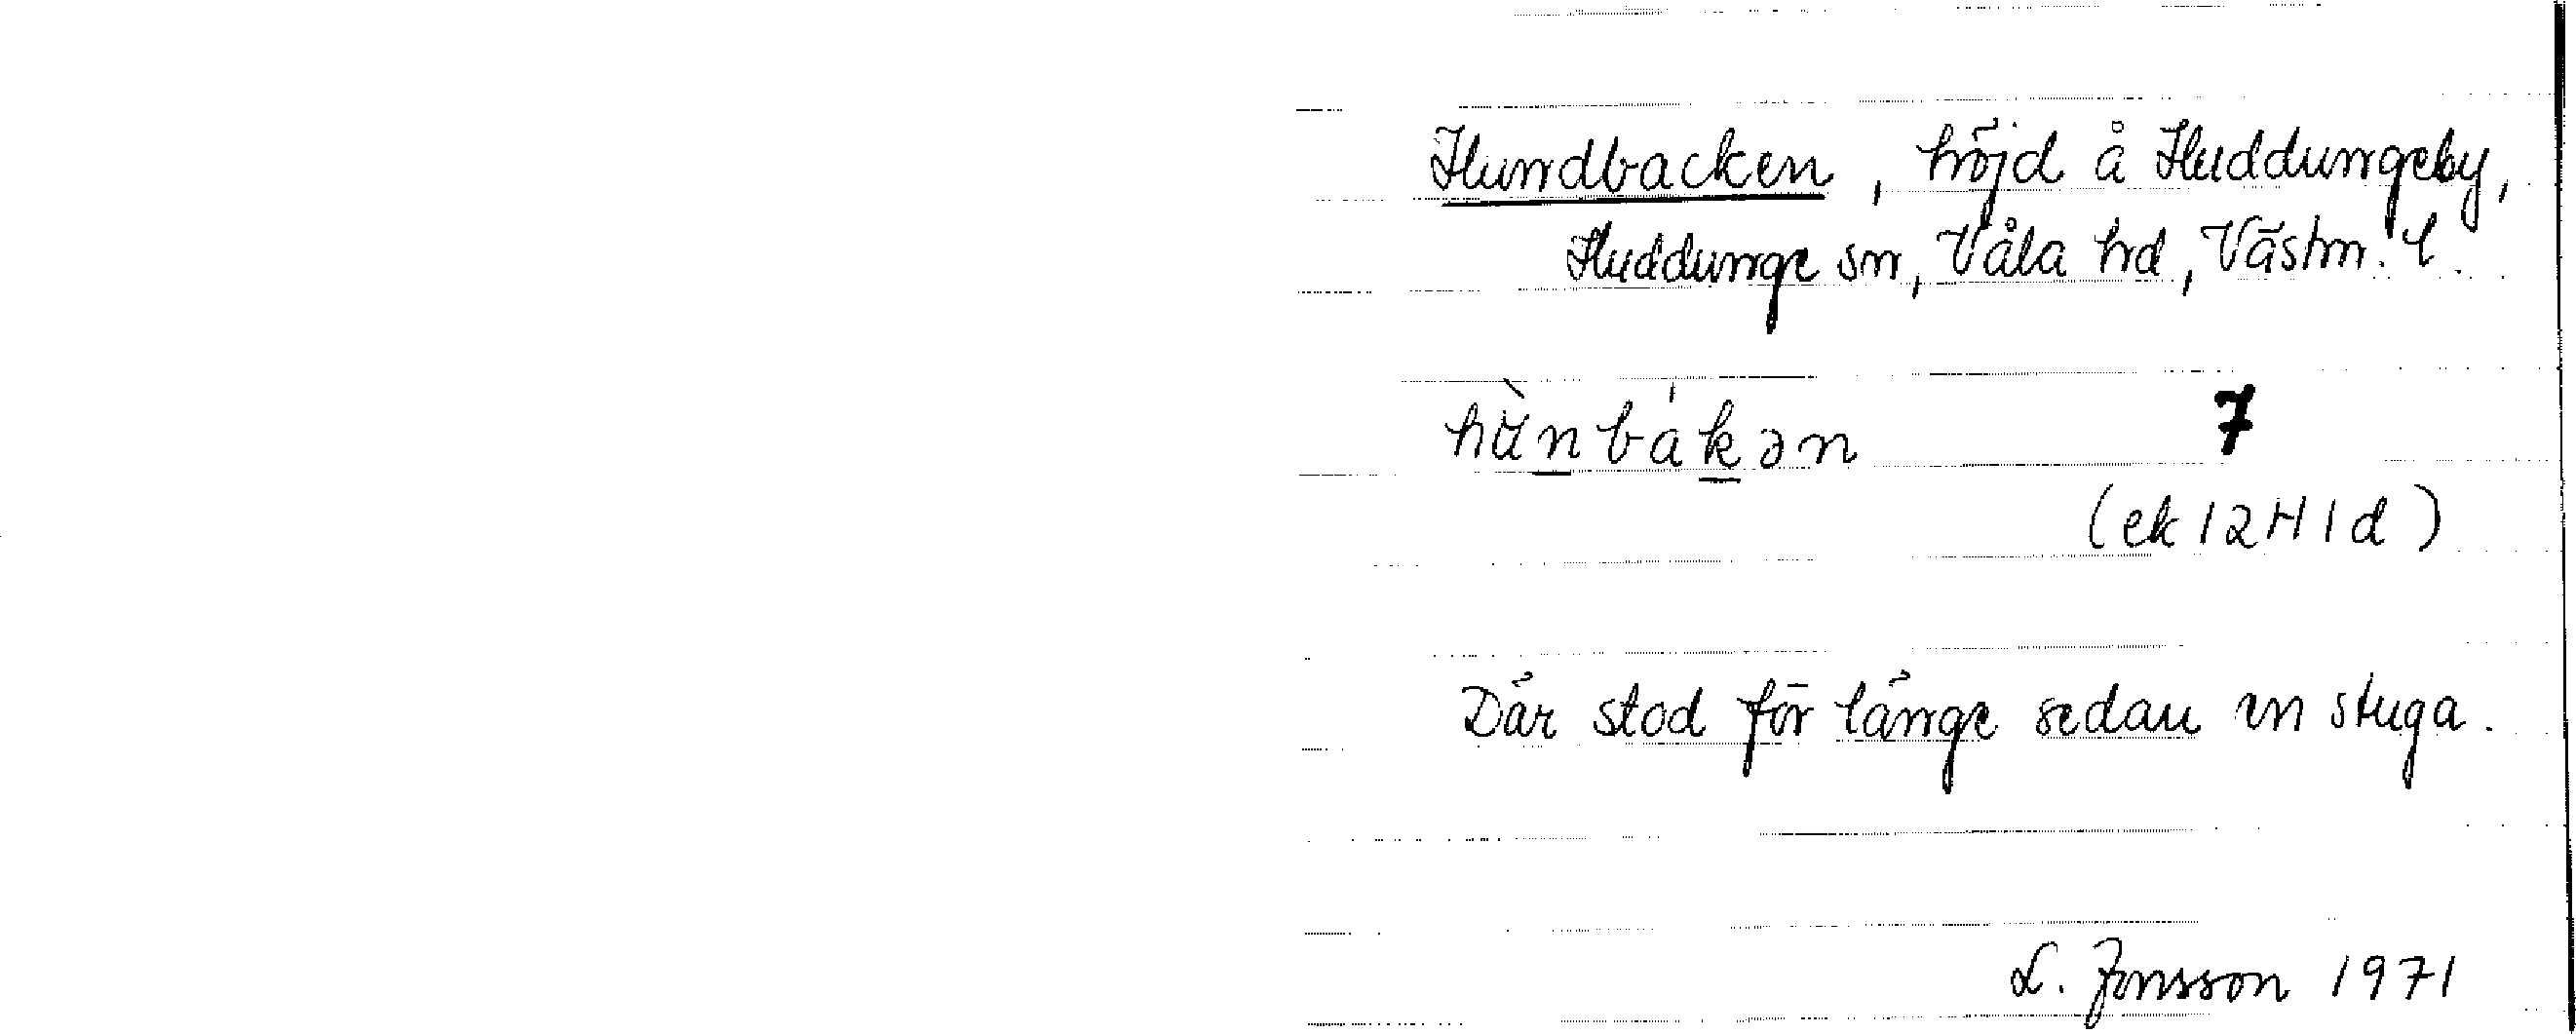 Hundbacken, höjd å Huddungeby,
Huddunge sn, Våla hd, Västm. l.
hùnbákən 7
(ek 12H1d)
Där stod för länge sedan en stuga.
L. Jonsson 1971